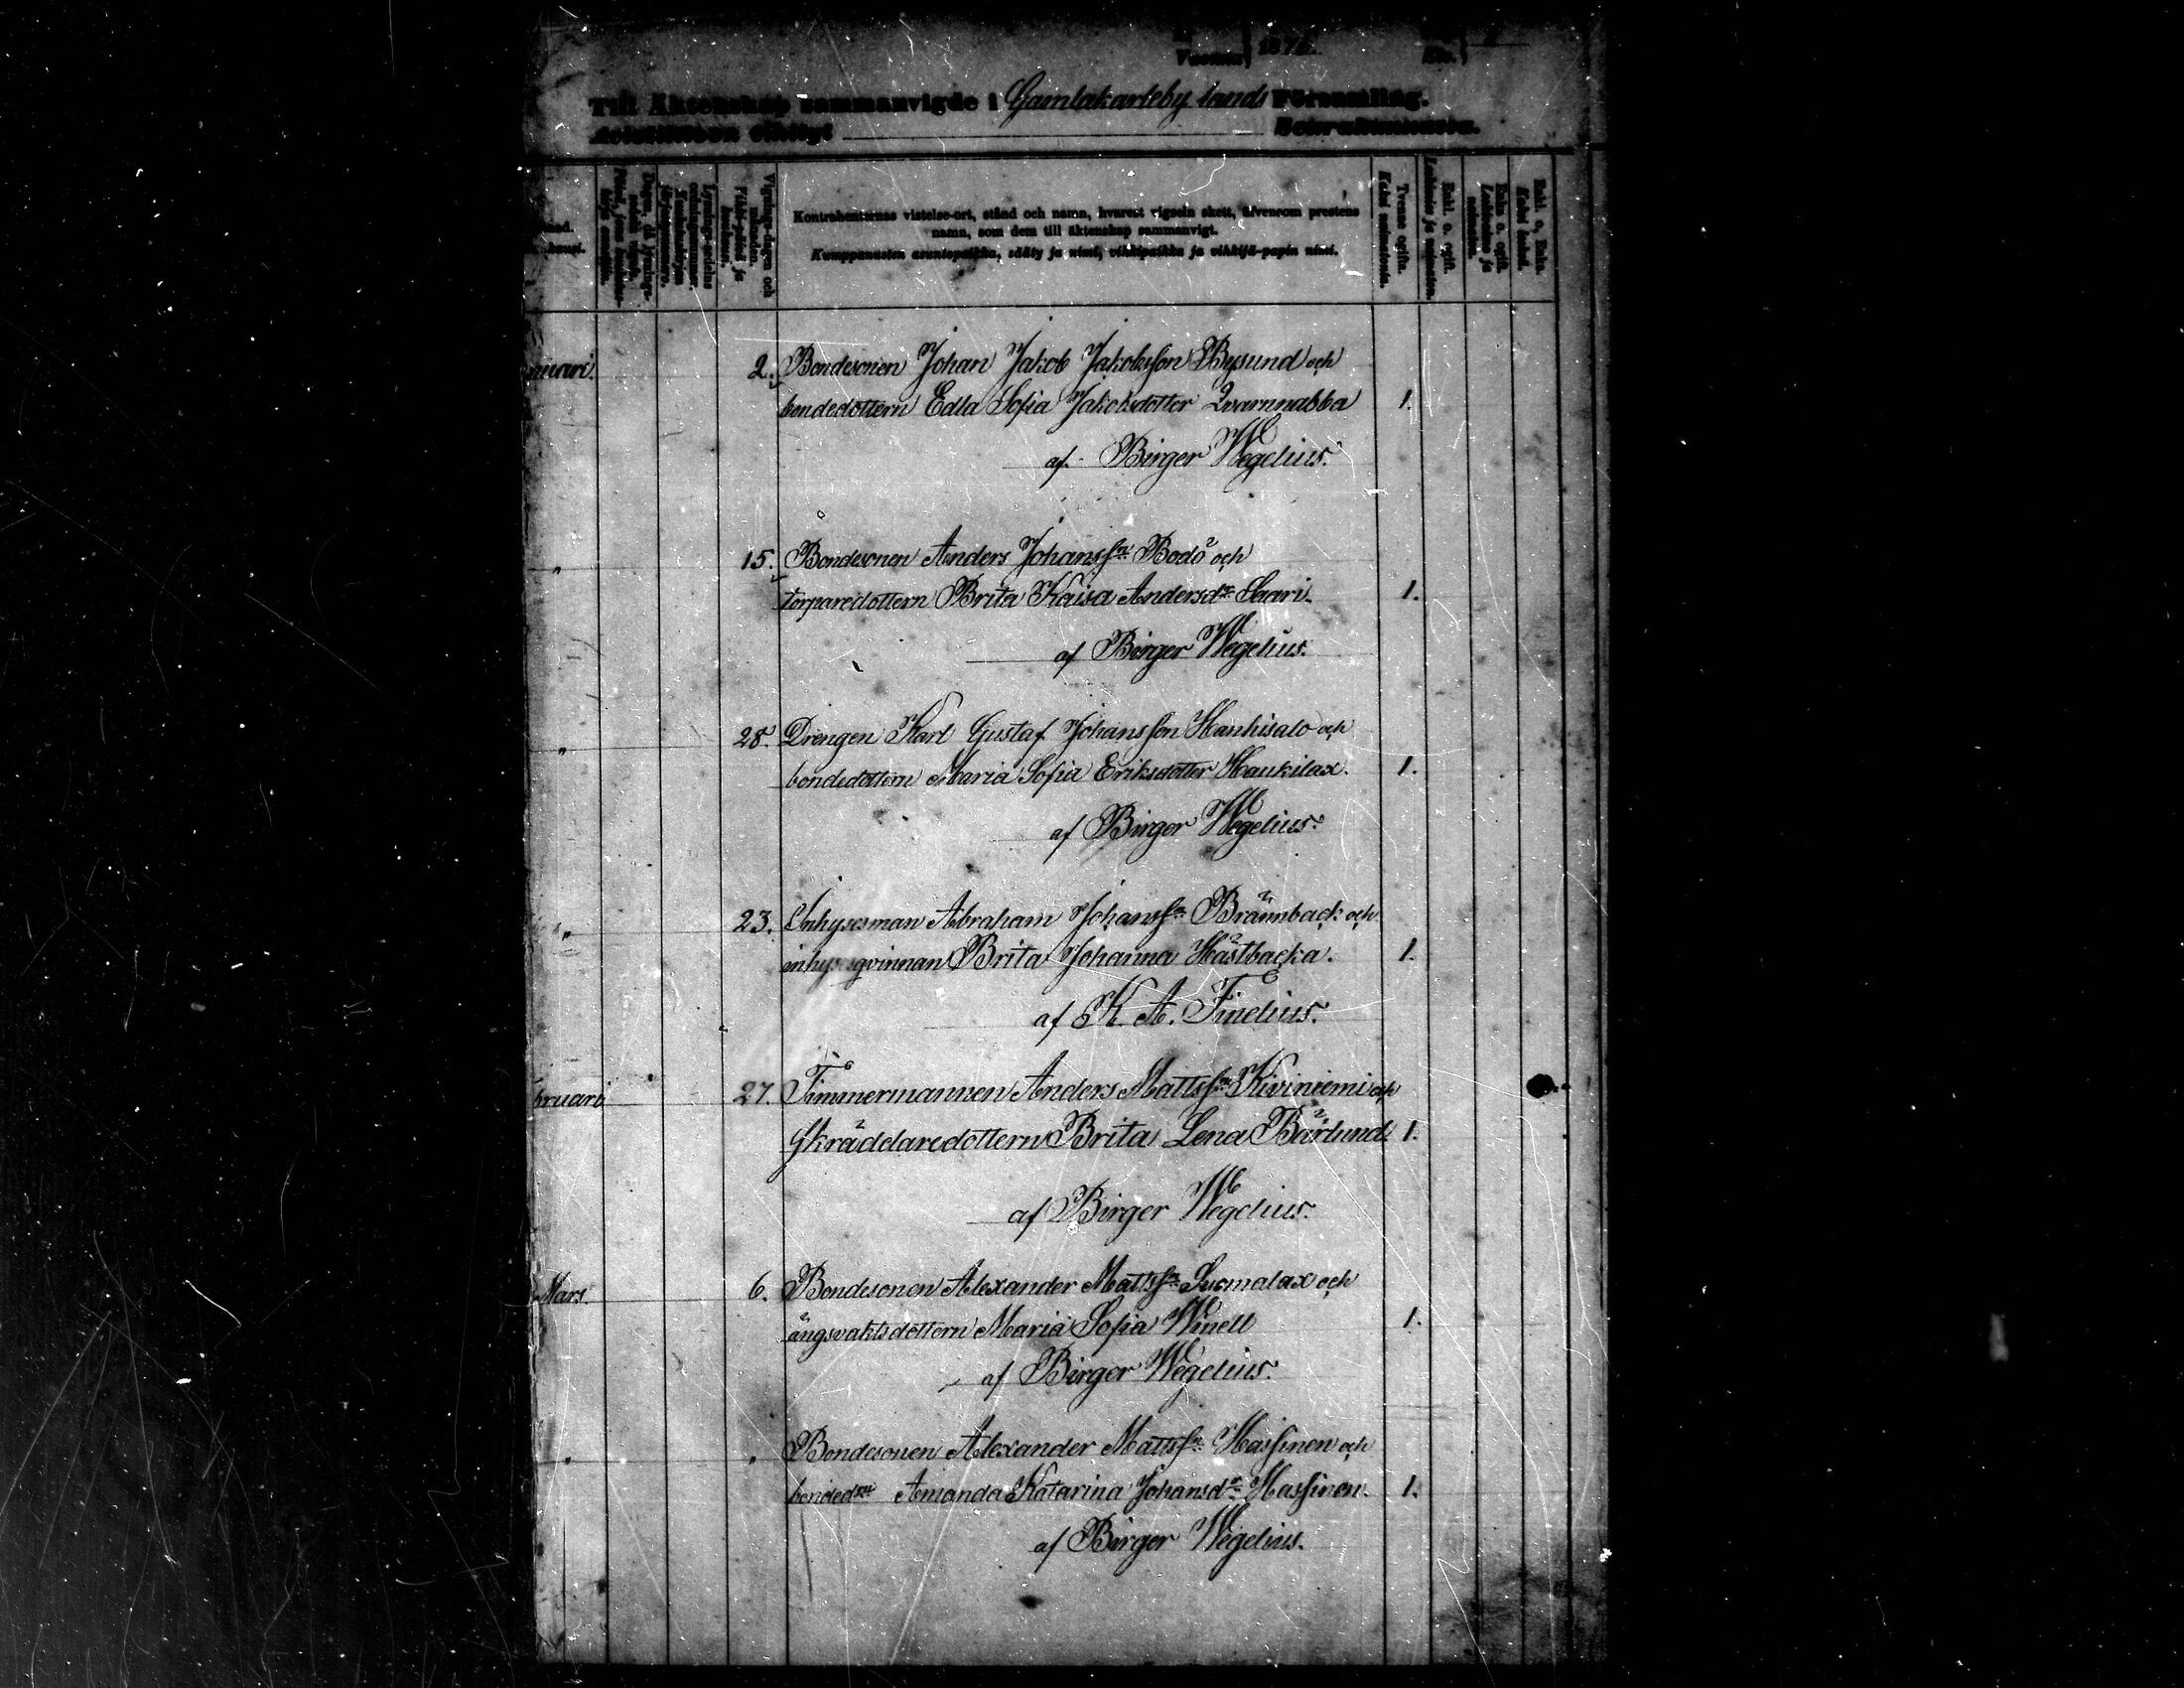 Vuonna 187
Till Äktenskap sammanvigde i Gamlakarleby lands Församling.
Seurakunnassa.
Vigning-dagen och månaden.
Tvenne ogifta.
Enkl. o. ogift.
Enka o. ogift.
Enkl. o. Enka.
Kontrahenternas vistelse-ort, stånd och namn, hvarest vigseln skett, äfvensom prestens
namn, som dem till äktenskap sammanvigt.
Kumppanusten asuntopaikka, sääty ja nimi, vihkipaikka ja vihkijä-papin nimi.
nuari. 2. Bondesonen Johan Jakob Jakobsson Bysund och
bondedottern Edla Sofia Jakobsdotter Qvarnnabba 1.
af Birger Wegelius.
" 15. Bondesonen Anders Johanssn Bodö och
torparedottern Brita Kaisa Andersdr Saari. 1.
af Birger Wegelius.
" 28. Drengen Karl Gustaf Johansson Hanhisalo och
bondedottern Maria Sofia Eriksdotter Haukilax. 1.
af Birger Wegelius.
" 23. Inhysesman Abraham Johanssn Brännback och
inhysesqvinnan Brita Johanna Hästbacka. 1.
af K. A. Finelius.
bruari 27. Timmermannen Anders Mattssn Kiviniemi och
Skräddaredottern Brita Lena Bärlund. 1.
af Birger Wegelius.
Mars. 6. Bondesonen Alexander Mattssn Suomalax och
ängsvaktsdottern Maria Sofia Winell 1.
af Birger Wegelius.
" " Bondesonen Alexander Mattssn Hassinen och
bondedrn Amanda Katarina Johansdr Hassinen. 1.
af Birger Wegelius.